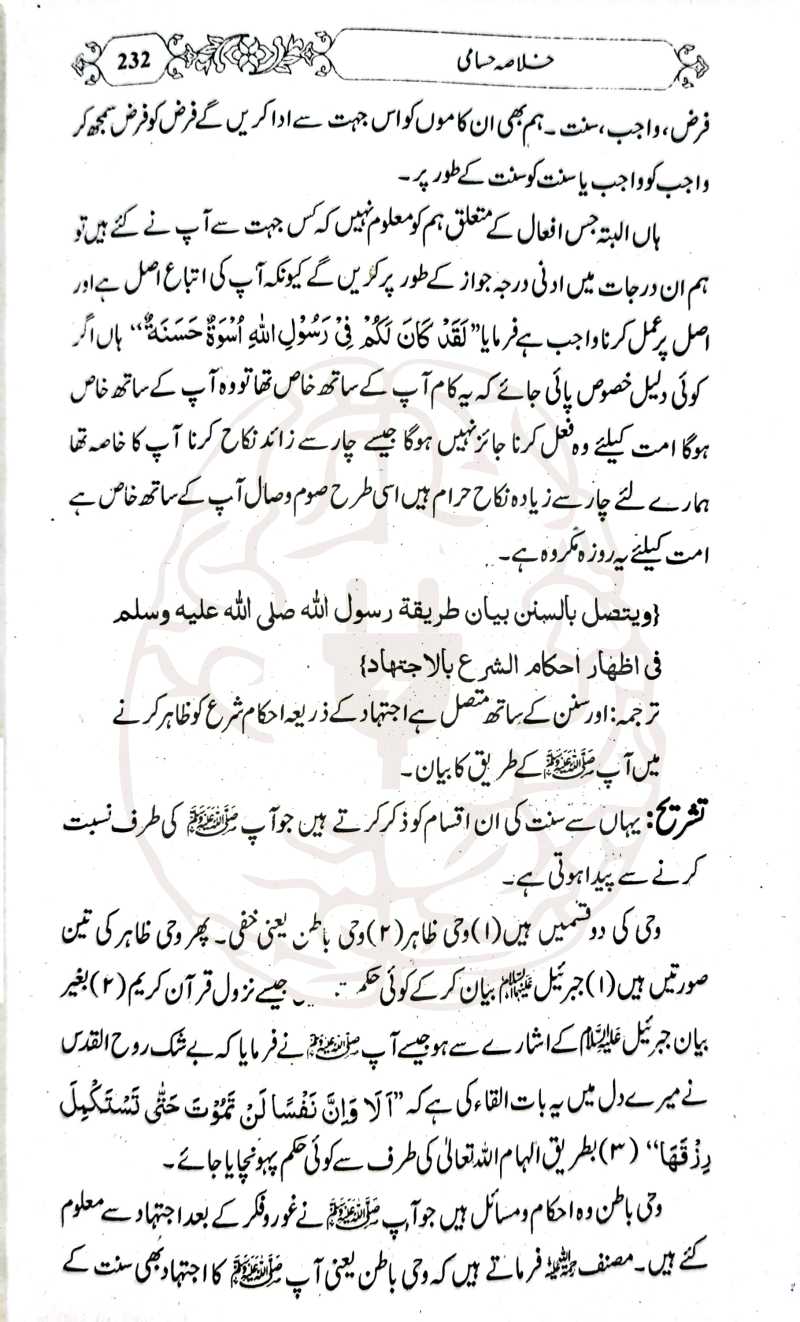 خلاصہ حسامی
232
فرض، واجب، سنت۔ ہم بھی ان کاموں کو اس جہت سے ادا کریں گے فرض کو فرض سمجھ کر
واجب کو واجب یا سنت کو سنت کے طور پر۔
ہاں البتہ جس افعال کے متعلق ہم کو معلوم نہیں کہ کس جہت سے آپ نے کئے ہیں تو
ہم ان درجات میں ادنی درجہ جواز کے طور پر کریں گے کیونکہ آپ کی اتباع اصل ہے اور
اصل پر عمل کرنا واجب ہے فرمایا ”لَقَدْ كَانَ لَكُمْ فِيْ رَسُوْلِ اللّٰهِ اُسْوَةٌ حَسَنَةٌ“ ہاں اگر
کوئی دلیل خصوص پائی جائے کہ یہ کام آپ کے ساتھ خاص تھا تو وہ آپ کے ساتھ خاص
ہوگا امت کیلئے وہ فعل کرنا جائز نہیں ہوگا جیسے چار سے زائد نکاح کرنا آپ کا خاصہ تھا
ہمارے لئے چار سے زیادہ نکاح حرام ہیں اسی طرح صوم وصال آپ کے ساتھ خاص ہے
امت کیلئے یہ روزہ مکروہ ہے۔
{ويتصل بالسنن بيان طريقة رسول الله صلى الله عليه وسلم
فى اظهار احكام الشرع بالاجتهاد}
ترجمہ: اور سنن کے ساتھ متصل ہے اجتہاد کے ذریعہ احکام شرع کو ظاہر کرنے
میں آپ ﷺ کے طریق کا بیان۔
تشریح: یہاں سے سنت کی ان اقسام کو ذکر کرتے ہیں جو آپ ﷺ کی طرف نسبت
کرنے سے پیدا ہوتی ہے۔
وحی کی دو قسمیں ہیں (۱) وحی ظاہر (۲) وحی باطن یعنی خفی۔ پھر وحی ظاہر کی تین
صورتیں ہیں (۱) جبرئیل علیہ السلام بیان کر کے کوئی حکم جیسے نزول قرآن کریم (۲) بغیر
بیان جبرئیل علیہ السلام کے اشارے سے ہو جیسے آپ ﷺ نے فرمایا کہ بے شک روح القدس
نے میرے دل میں یہ بات القاء کی ہے کہ ”اَلَا وَاِنَّ نَفْسًا لَنْ تَمُوْتَ حَتّٰى تَسْتَكْمِلَ
رِزْقَهَا“ (۳) بطریق الہام اللہ تعالیٰ کی طرف سے کوئی حکم پہونچایا جائے۔
وحی باطن وہ احکام و مسائل ہیں جو آپ ﷺ نے غور و فکر کے بعد اجتہاد سے معلوم
کئے ہیں۔ مصنف رحمۃ اللہ علیہ فرماتے ہیں کہ وحی باطن یعنی آپ ﷺ کا اجتہاد بھی سنت کے